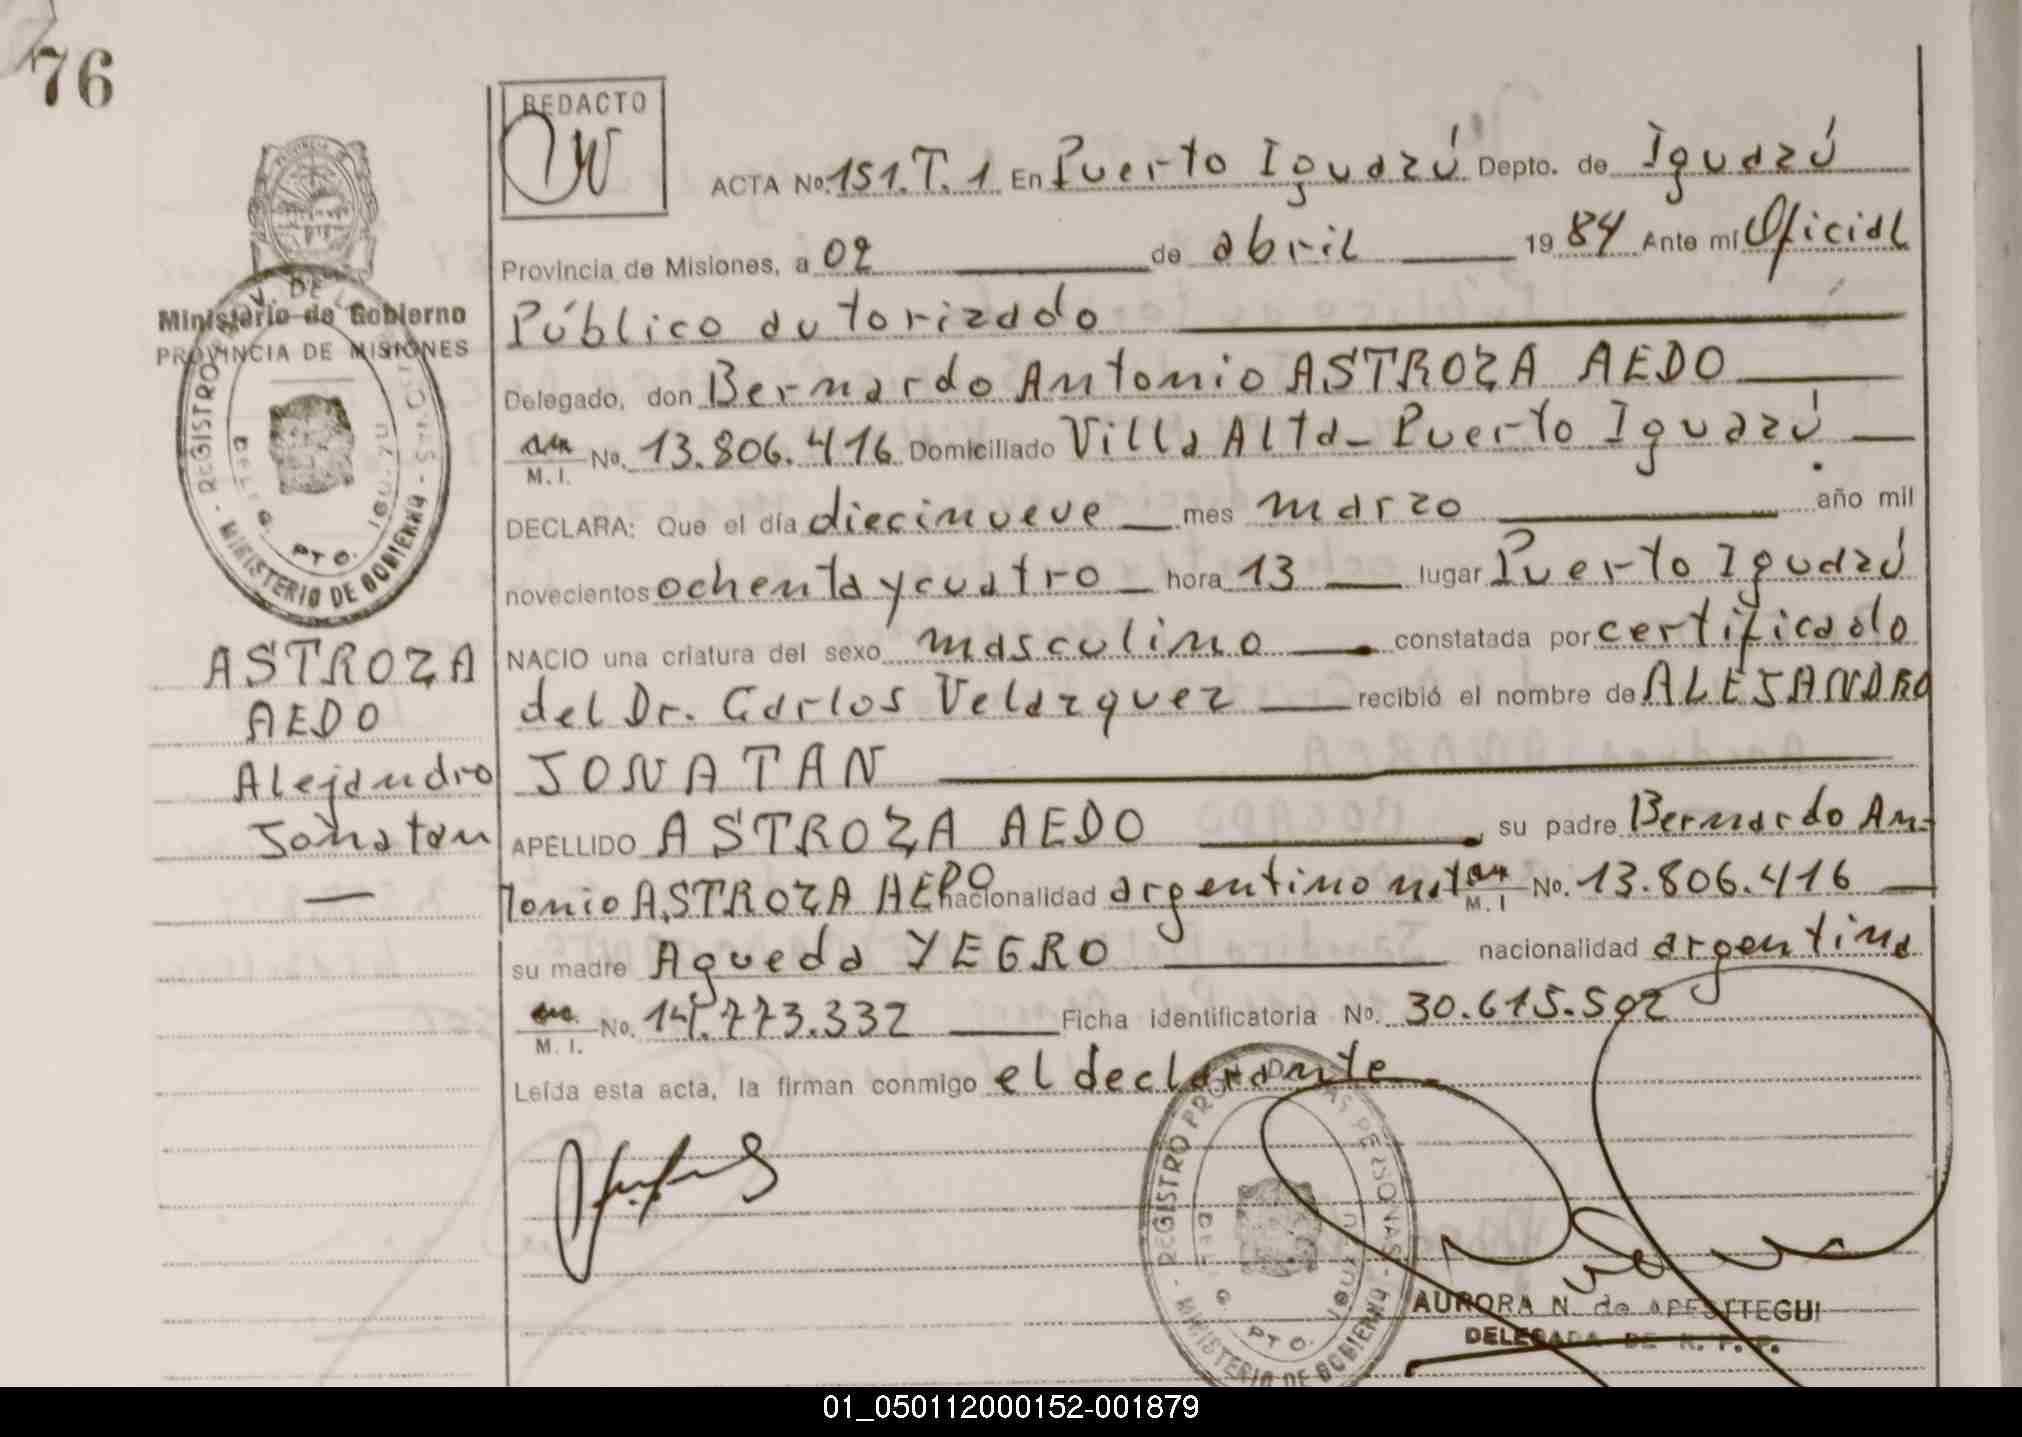 76
REDACTO
ACTA No. 151.T.1 En Puerto Iguazú Depto. de Iguazú
Provincia de Misiones, a 02 de abril 1984 Ante mí Oficial
Público autorizado
Delegado, don Bernardo Antonio ASTROZA AEDO
M. I. No. 13.806.416 Domiciliado Villa Alta - Puerto Iguazú
DECLARA: Que el día diecinueve mes marzo año mil
novecientos ochenta y cuatro hora 13 lugar Puerto Iguazú
NACIO una criatura del sexo masculino constatada por certificado
del Dr. Carlos Velazquez recibió el nombre de ALEJANDRO
JONATAN
APELLIDO ASTROZA AEDO su padre Bernardo An-
tonio ASTROZA AEDO nacionalidad argentino nat. M. I No. 13.806.416
su madre Agueda YEGRO nacionalidad argentina
M. I. No. 14.773.332 Ficha identificatoria No. 30.615.502
Leída esta acta, la firman conmigo el declarante
Ministerio de Gobierno
PROVINCIA DE MISIONES
MINISTERIO DE GOBIERNO
PTO. IGUAZU
ASTROZA
AEDO
Alejandro
Jonatan
REGISTRO PROV. DE LAS PERSONAS
MINISTERIO DE GOBIERNO
PTO. IGUAZU
AURORA N. de APESTTEGUI
DELEGADA DE R. P. P.
01_050112000152-001879